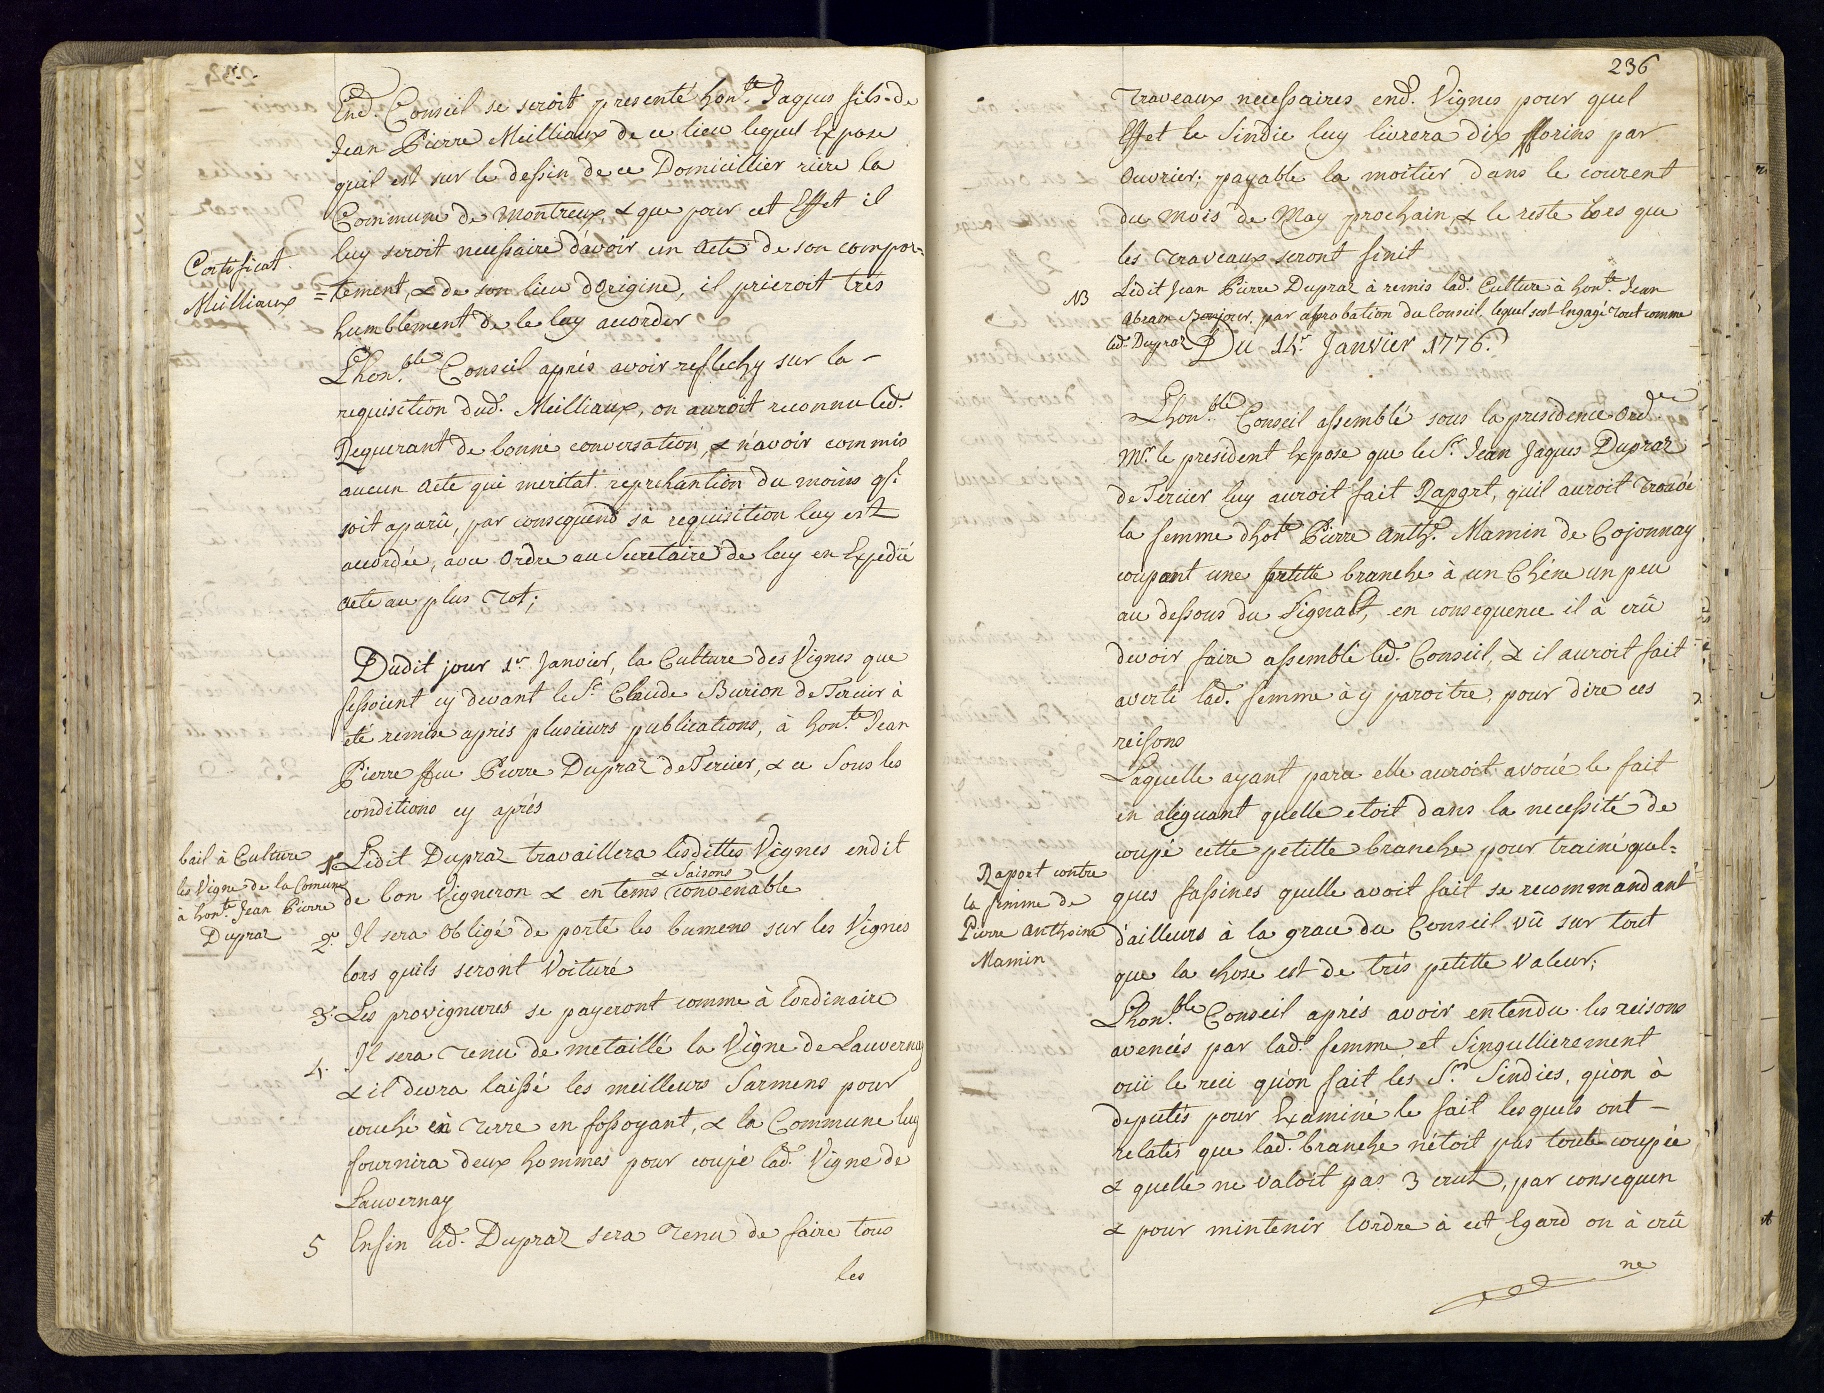 End. Conseil se seroit presenté hon.te Jaques fils de
Jean Pierre Meilliaux de ce lieu lequel Expose
quil est sur le dessin de ce Domicillier riere la
Commune de Montreux, & que pour cet Effet il
luy seroit necessaire d'avoir un Acte de son compor=
Certificat
Meilliaux
=tement, & de son lieu d'Origine, il prieroit très
humblement de le luy accorder
L'hon.ble Conseil aprés avoir reflechy sur la
requisition dud. Meilliaux, on auroit reconnu led.
Requerant de bonne conversation, & n'avoir commis
aucun Acte qui meritat reprehantion du moins qu'il
soit aparû, par consequend sa requisition luy est
accordée, avec Ordre au Secretaire de luy en Expedié
Acte au plus tot;
Dudit jour 1.er Janvier, la Culture des Vignes que
fessoient cy devant le S.r Claude Burion de Tercier à
été remise aprés plusieurs publications, à hon.te Jean
Pierre ffeu Pierre Dupraz de Tercier, & ce Sous les
conditions cy aprés
bail à Culture
les Vigne de la Comune
à hon.te Jean Pierre
Dupraz
1.e Ledit Dupraz travaillera lesdittes Vignes endit
& Saisons
de bon Vigneron & en tems convenable
2.e Il sera Obligé de porté les bumens sur les Vignes
lors quils seront Voituré
3.e Les provignures se payeront comme à l'ordinaire
4. Il sera tenu de metaillé la Vigne de Lauvernay
& il devra laissé les meilleurs Sarmens pour
couché en terre en fossoyant, & la Commune luy
fournira deux hommes pour coupé lad. Vigne de
Lauvernay
5 Enfin led. Dupraz sera tenu de faire tous
les
236
traveaux necessaires end. Vignes pour quel
Effet le Sindic luy livrera dix fflorins par
Ouvrier; payable la moitier dans le courent
du mois de May prochain & le reste lors que
les traveaux seront finit
NB Ledit Jean Pierre Dupraz à remis lad. Culture à hon.te Jean
Abram Bonjour par aprobation du Conseil lequel sest Engagé tout comme
led. Dupraz
Du 14.e Janvier 1776.
L'hon.ble Conseil assemblé sous la presidence Ord.re
M.r le president Expose que le S.r Jean Jaques Dupraz
de Tercier luy auroit fait Raport, quil auroit trouvé
la femme d'ho.te Pierre Anth.e Mamin de Cojonnay
coupant une petitte branche à un Chêne un peu
au dessous du Signalt, en consequence il à crû
devoir faire assemblé led. Conseil, & il auroit fait
averti lad. femme à y paroitre, pour dire ces
reisons
Laquelle ayant paru elle auroit avoué le fait
en aleguant quelle etoit dans la necessité de
coupé cette petitte branche pour trainé quel=
Raport contre
la femme de
Pierre Anthoine
Mamin
ques fassines quelle avoit fait se recommandant
d'ailleurs à la grace du Conseil vû sur tout
que la chose est de très petitte Valeur;
L'hon.ble Conseil aprés avoir entendu les reisons
avencés par lad. femme, et Singullierement
oüi le reci qu'on fait les S.rs Sindics, qu'on à
deputés pour Examiné le fait lesquels ont
relatés que lad. branche n'étoit pas toute coupée
& quelle ne valoit pas 3 crutz, par consequen
& pour mintenir l'ordre à cet Egard on à crû
ne